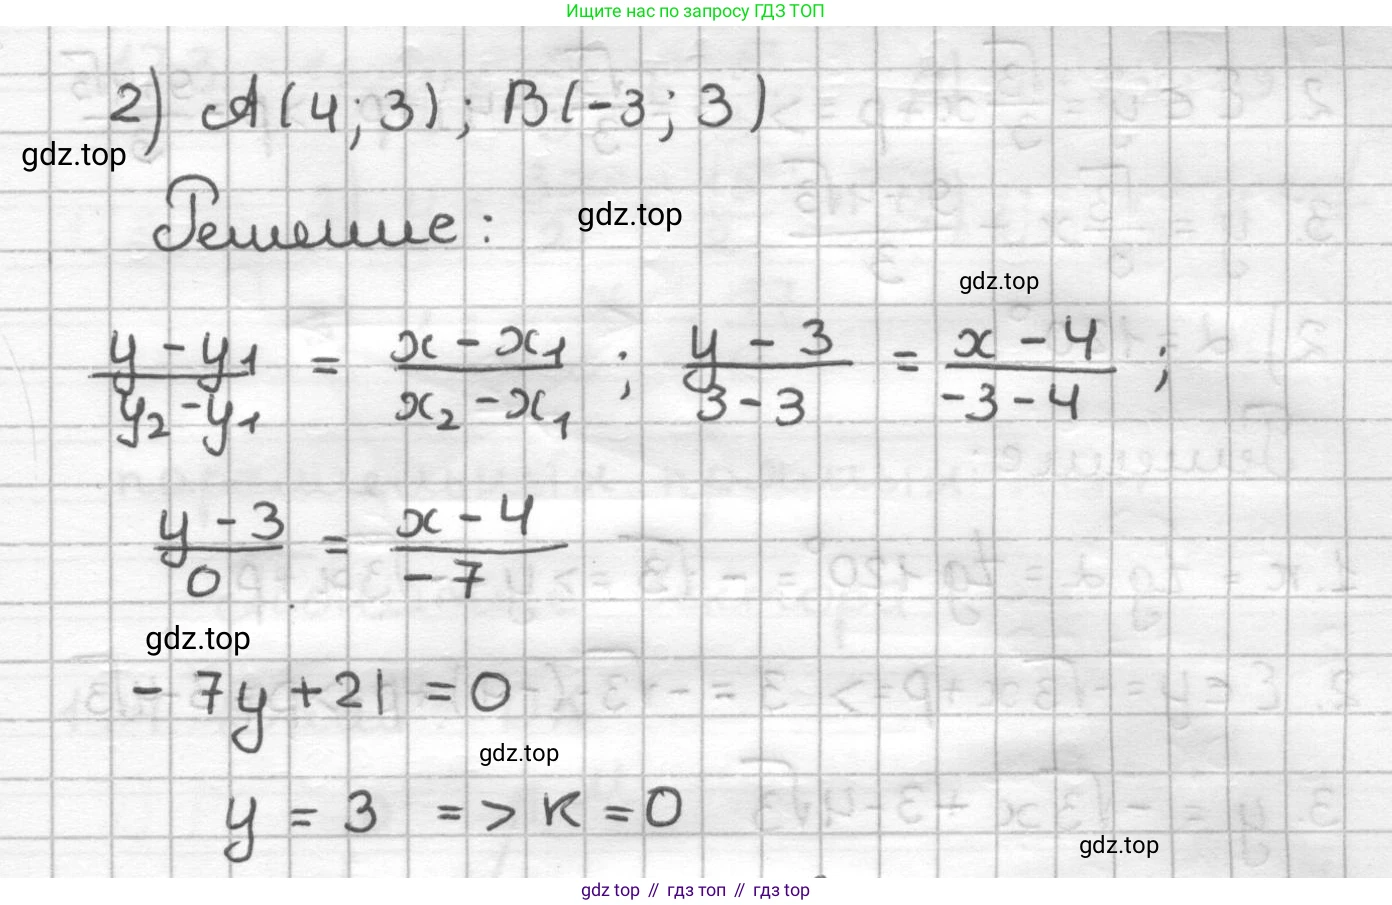 Ищите нас по запросу ГДЗ ТОП
2) A(4; 3); B(-3; 3)
gdz.top
Решение:
gdz.top
gdz.top
(y - y₁)/(y₂ - y₁) = (x - x₁)/(x₂ - x₁); (y - 3)/(3 - 3) = (x - 4)/(-3 - 4);
(y - 3)/0 = (x - 4)/(-7)
gdz.top
- 7y + 21 = 0
gdz.top
y = 3 => k = 0
gdz.top
gdz top // гдз топ // гдз top